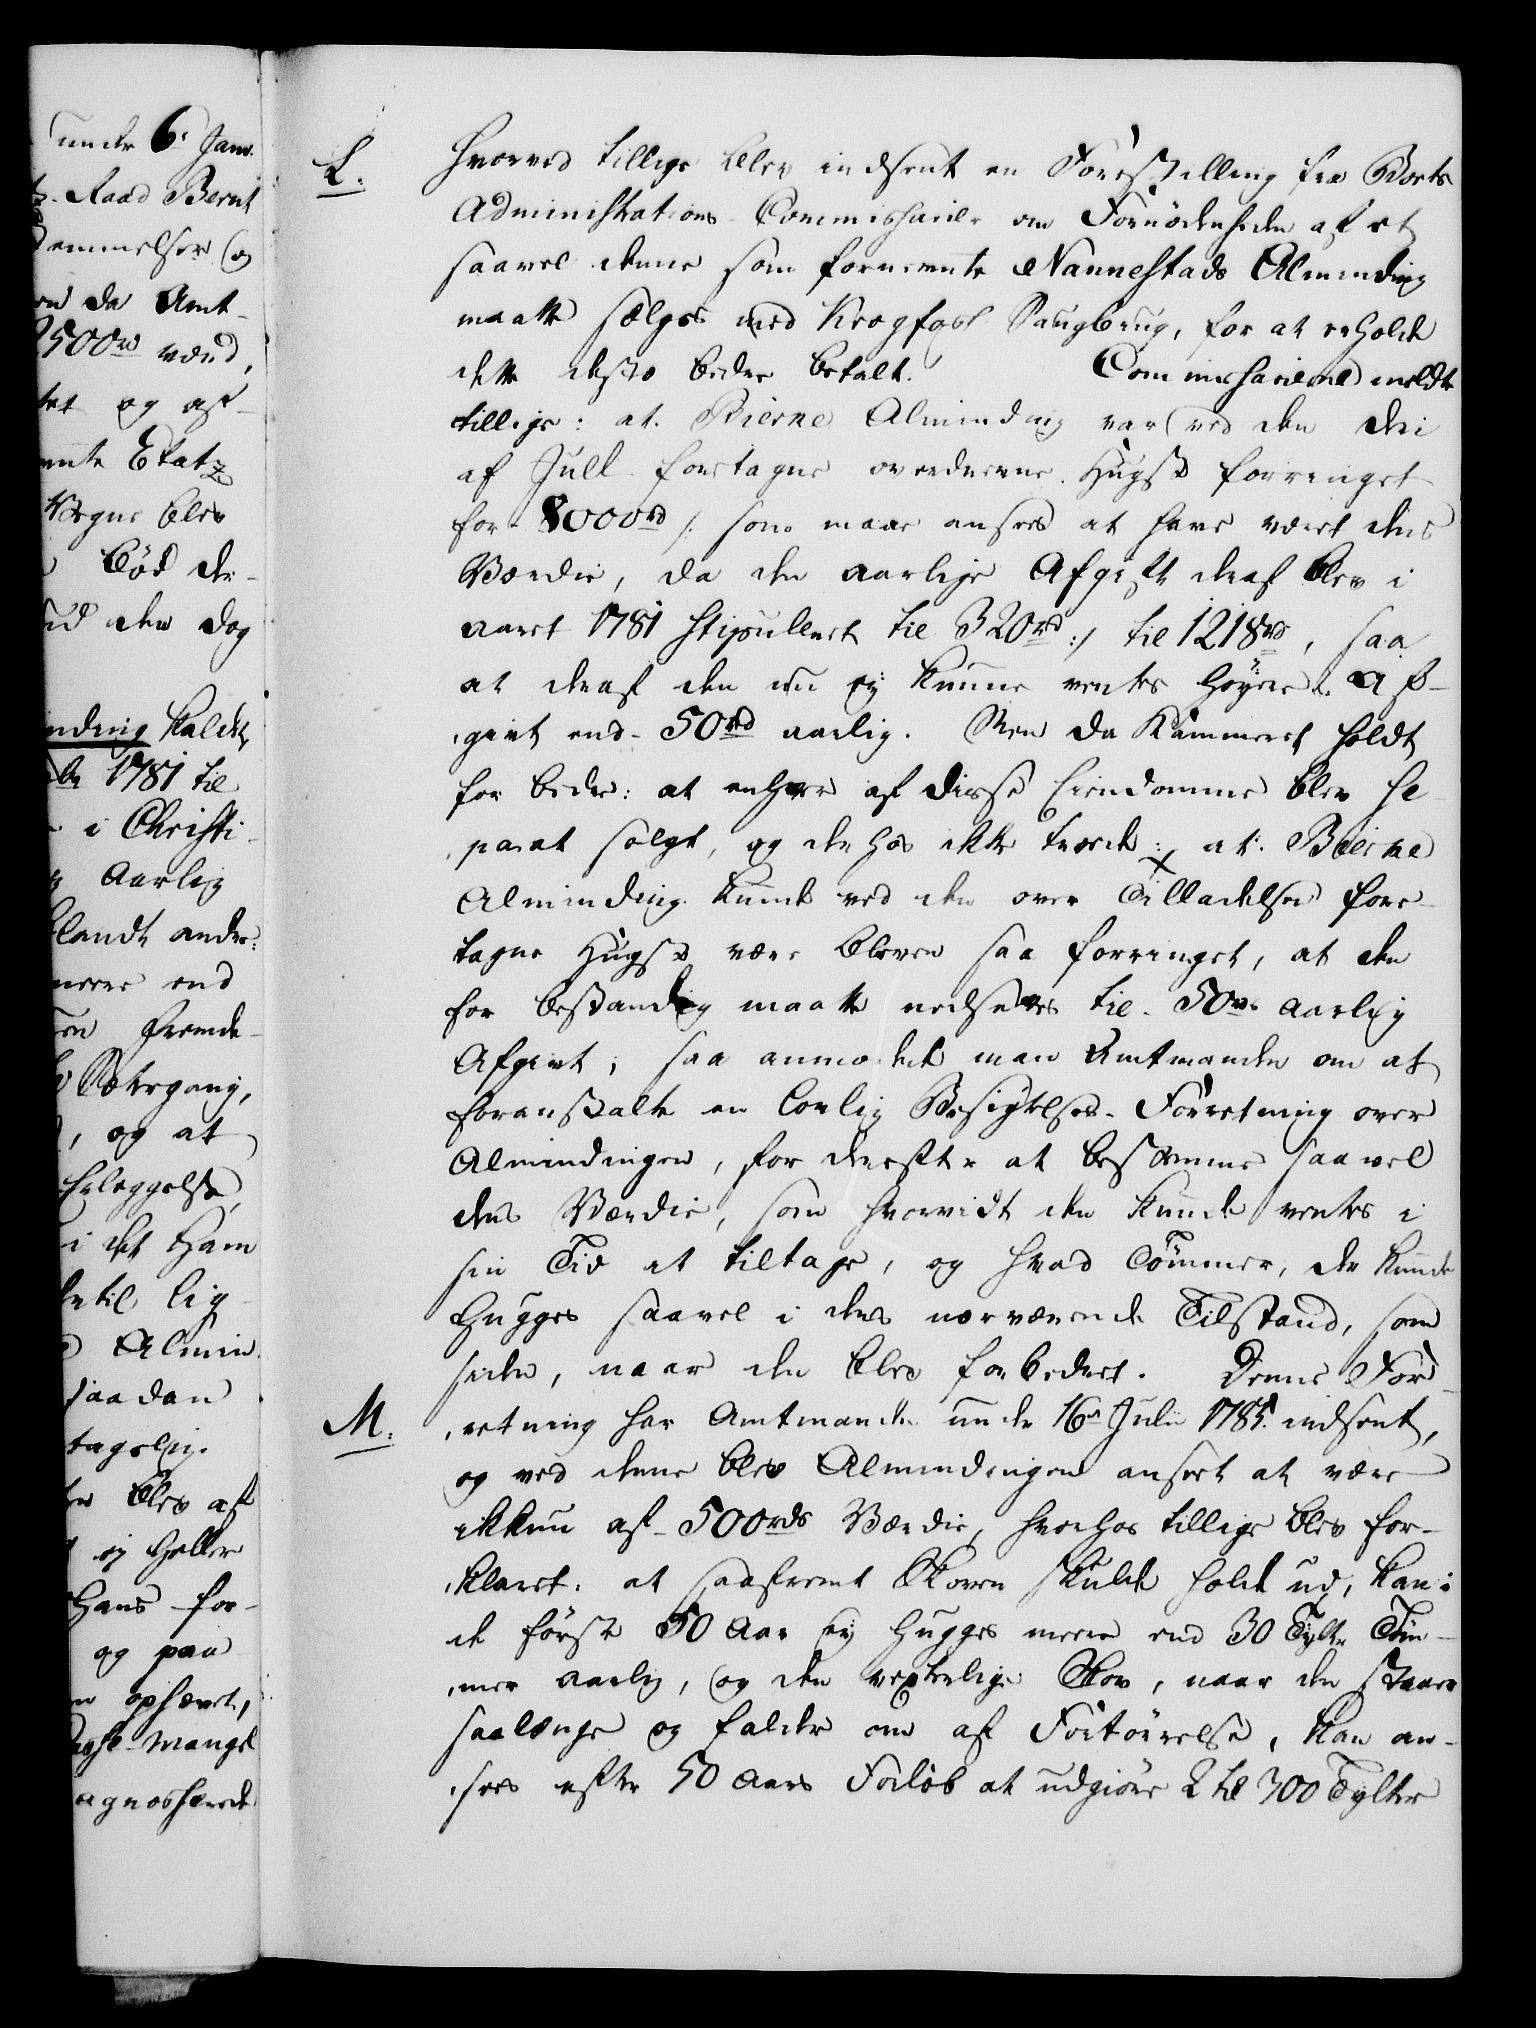 under 6. Janv.
Raad Bernt
emmelser og
en da Amt-
2500rd værd,
tet og af-
mte Etatz
Vegne blev
bød der-
ud den dog
nding kaldet,
1781 til
i Christi-
Aarlig
blandt andre:
meere end
fremde-
Sætergang,
, og at
Erlæggelse,
i det Ham
dertil lig-
Almin-
saadan
tagelig.
blev af
ej heller
Hans for-
og paa
ophævet,
Mangel
agnoshered
L. hvorved tillige blev indsent en Forestilling fra Boets
Administrations-Commissairer om Fornødenheden af at
saavel denne som fornevnte Nannestads Alminding
maatte sælges med Krogfoss Saugbrug, for at erholde
dette desto bedre betalt. Commissairerne meldte
tillige: at Bierne Alminding var ved den der
af Juel foretagne overdrevne Hugst forringet
for 8000rd /: som maae ansees at have været dens
Værdie, da den aarlige Afgift deraf blev i
aaret 1781 stipuleret til 320rd :/ til 1218rd, saa
at deraf den nu ej kunne ventes høyere Af-
givt end 50rd aarlig. Men da Kammeret holdt
for bedre: at enhver af disse Eiendomme blev se-
parat solgt, og derhos ikke troede: at Bierne
Alminding kunde ved den over Tilladelsen fore-
tagne Hugst være bleven saa forringet, at den
for bestandig maatte nedsettes til 50rd aarlig
Afgivt; saa anmodede man Amtmanden om at
foranstalte en lovlig Besigtelses-Forretning over
Almindingen, for derefter at bestemme saavel
dens Værdie, som hvorvidt den kunde ventes i
sin Tid at tiltage, og hvad Tømmer, der kunde
hugges saavel i dens nærværende Tilstand, som
siden, naar den blev forbedret. Denne For-
M. retning har Amtmanden under 16de Julii 1785 indsent,
og ved denne blev Almindingen anseet at være
ikkun af 500rds Værdie, hvorhos tillige blev for-
klaret: at saafremt Skoven skulde holde ud, kan i
de første 50 Aar ej hugges meere end 30 Tylter Tøm-
mer aarlig, og den vextelige Skov, naar den staaer
saalænge og falder om af Fortørrelse, kan an-
sees efter 50 Aars Forløb at udgiøre 2 til 300 Tylter